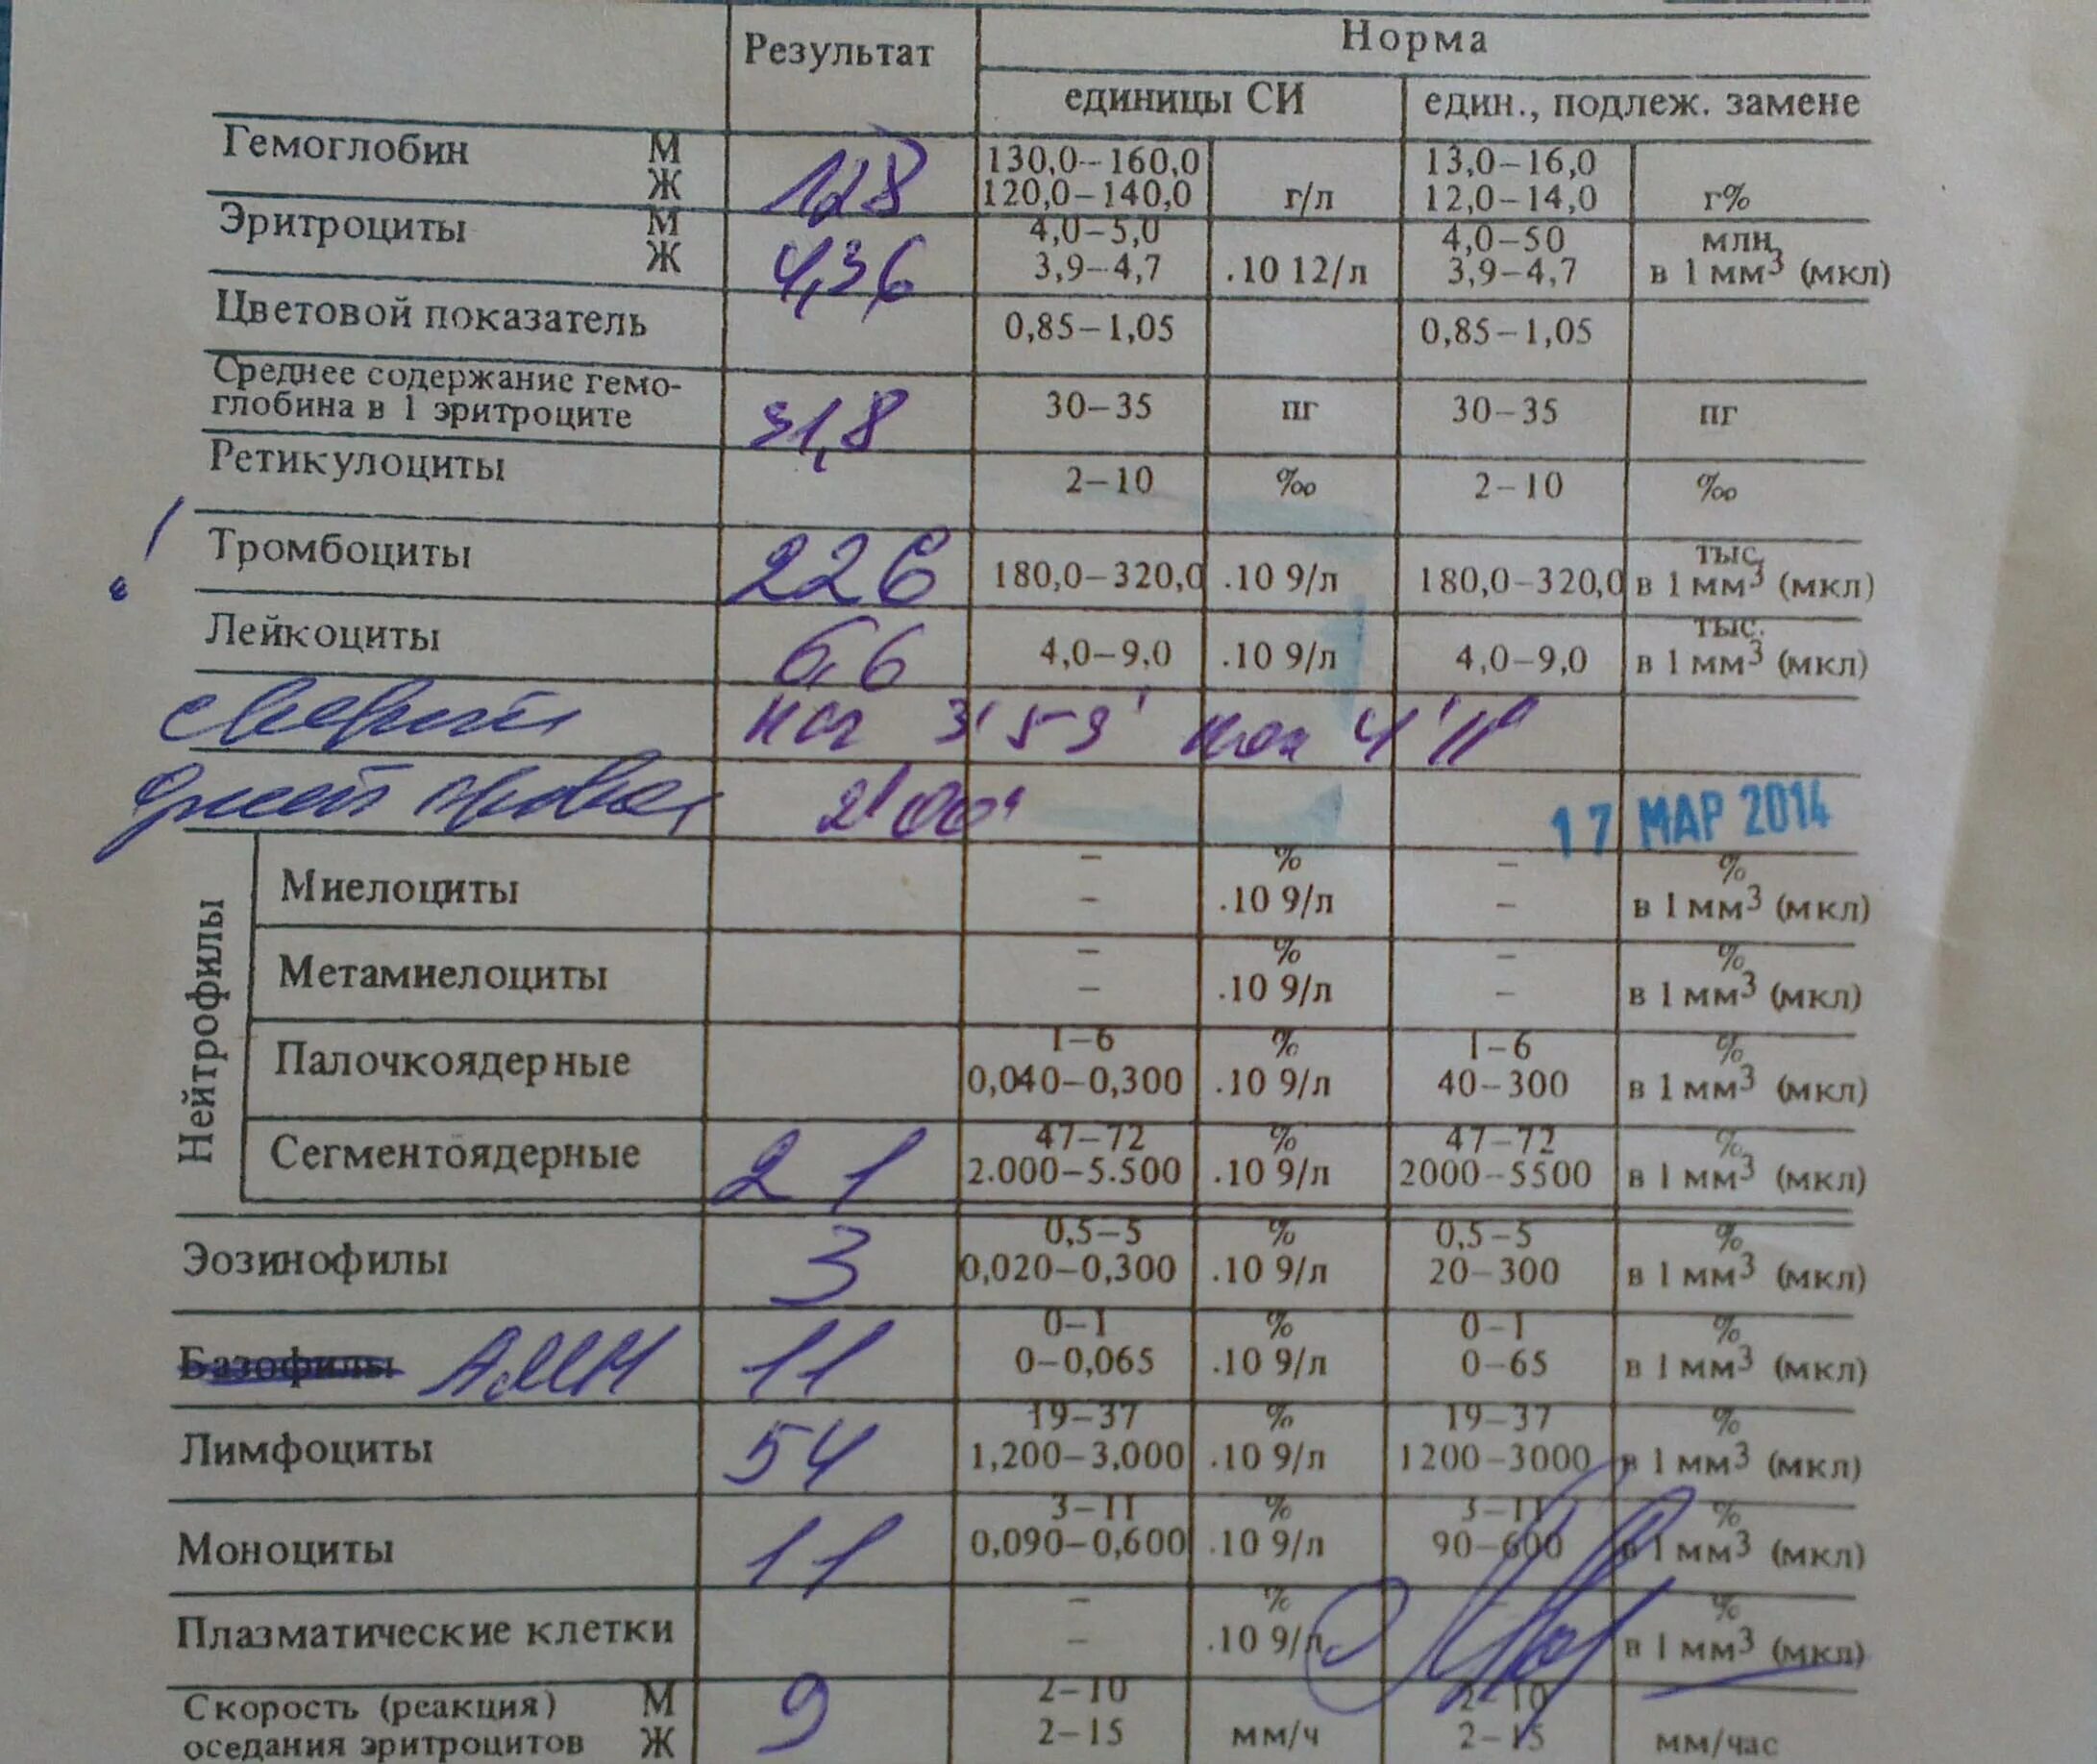 Результат Норма
единицы СИ един., подлеж. замене
Гемоглобин М 128 130,0–160,0 13,0–16,0
Ж 120,0–140,0 г/л 12,0–14,0 г%
Эритроциты М 4,36 4,0–5,0 4,0–50 млн.
Ж 3,9–4,7 .10 12/л 3,9–4,7 в 1 мм3 (мкл)
Цветовой показатель 0,85–1,05 0,85–1,05
Среднее содержание гемо-
глобина в 1 эритроците 31,8 30–35 пг 30–35 пг
Ретикулоциты 2–10 ‰ 2–10 ‰
! Тромбоциты 226 180,0–320,0 .10 9/л 180,0–320,0 тыс. в 1 мм3 (мкл)
Лейкоциты 6,6 4,0–9,0 .10 9/л 4,0–9,0 тыс. в 1 мм3 (мкл)
нач 3'59' кон 4'11"
2'00"
17 МАР 2014
Нейтрофилы
Миелоциты – % – %
– .10 9/л – в 1 мм3 (мкл)
Метамиелоциты – % – %
– .10 9/л – в 1 мм3 (мкл)
Палочкоядерные 1–6 % 1–6 %
0,040–0,300 .10 9/л 40–300 в 1 мм3 (мкл)
Сегментоядерные 21 47–72 % 47–72 %
2.000–5.500 .10 9/л 2000–5500 в 1 мм3 (мкл)
Эозинофилы 3 0,5–5 % 0,5–5 %
0,020–0,300 .10 9/л 20–300 в 1 мм3 (мкл)
Базофилы АМН 11 0–1 % 0–1 %
0–0,065 .10 9/л 0–65 в 1 мм3 (мкл)
Лимфоциты 54 19–37 % 19–37 %
1,200–3,000 .10 9/л 1200–3000 в 1 мм3 (мкл)
Моноциты 11 3–11 % 3–11 %
0,090–0,600 .10 9/л 90–600 в 1 мм3 (мкл)
Плазматические клетки – % %
– .10 9/л в 1 мм3 (мкл)
Скорость (реакция) М 9 2–10 2–10
оседания эритроцитов Ж 2–15 мм/ч 2–15 мм/час